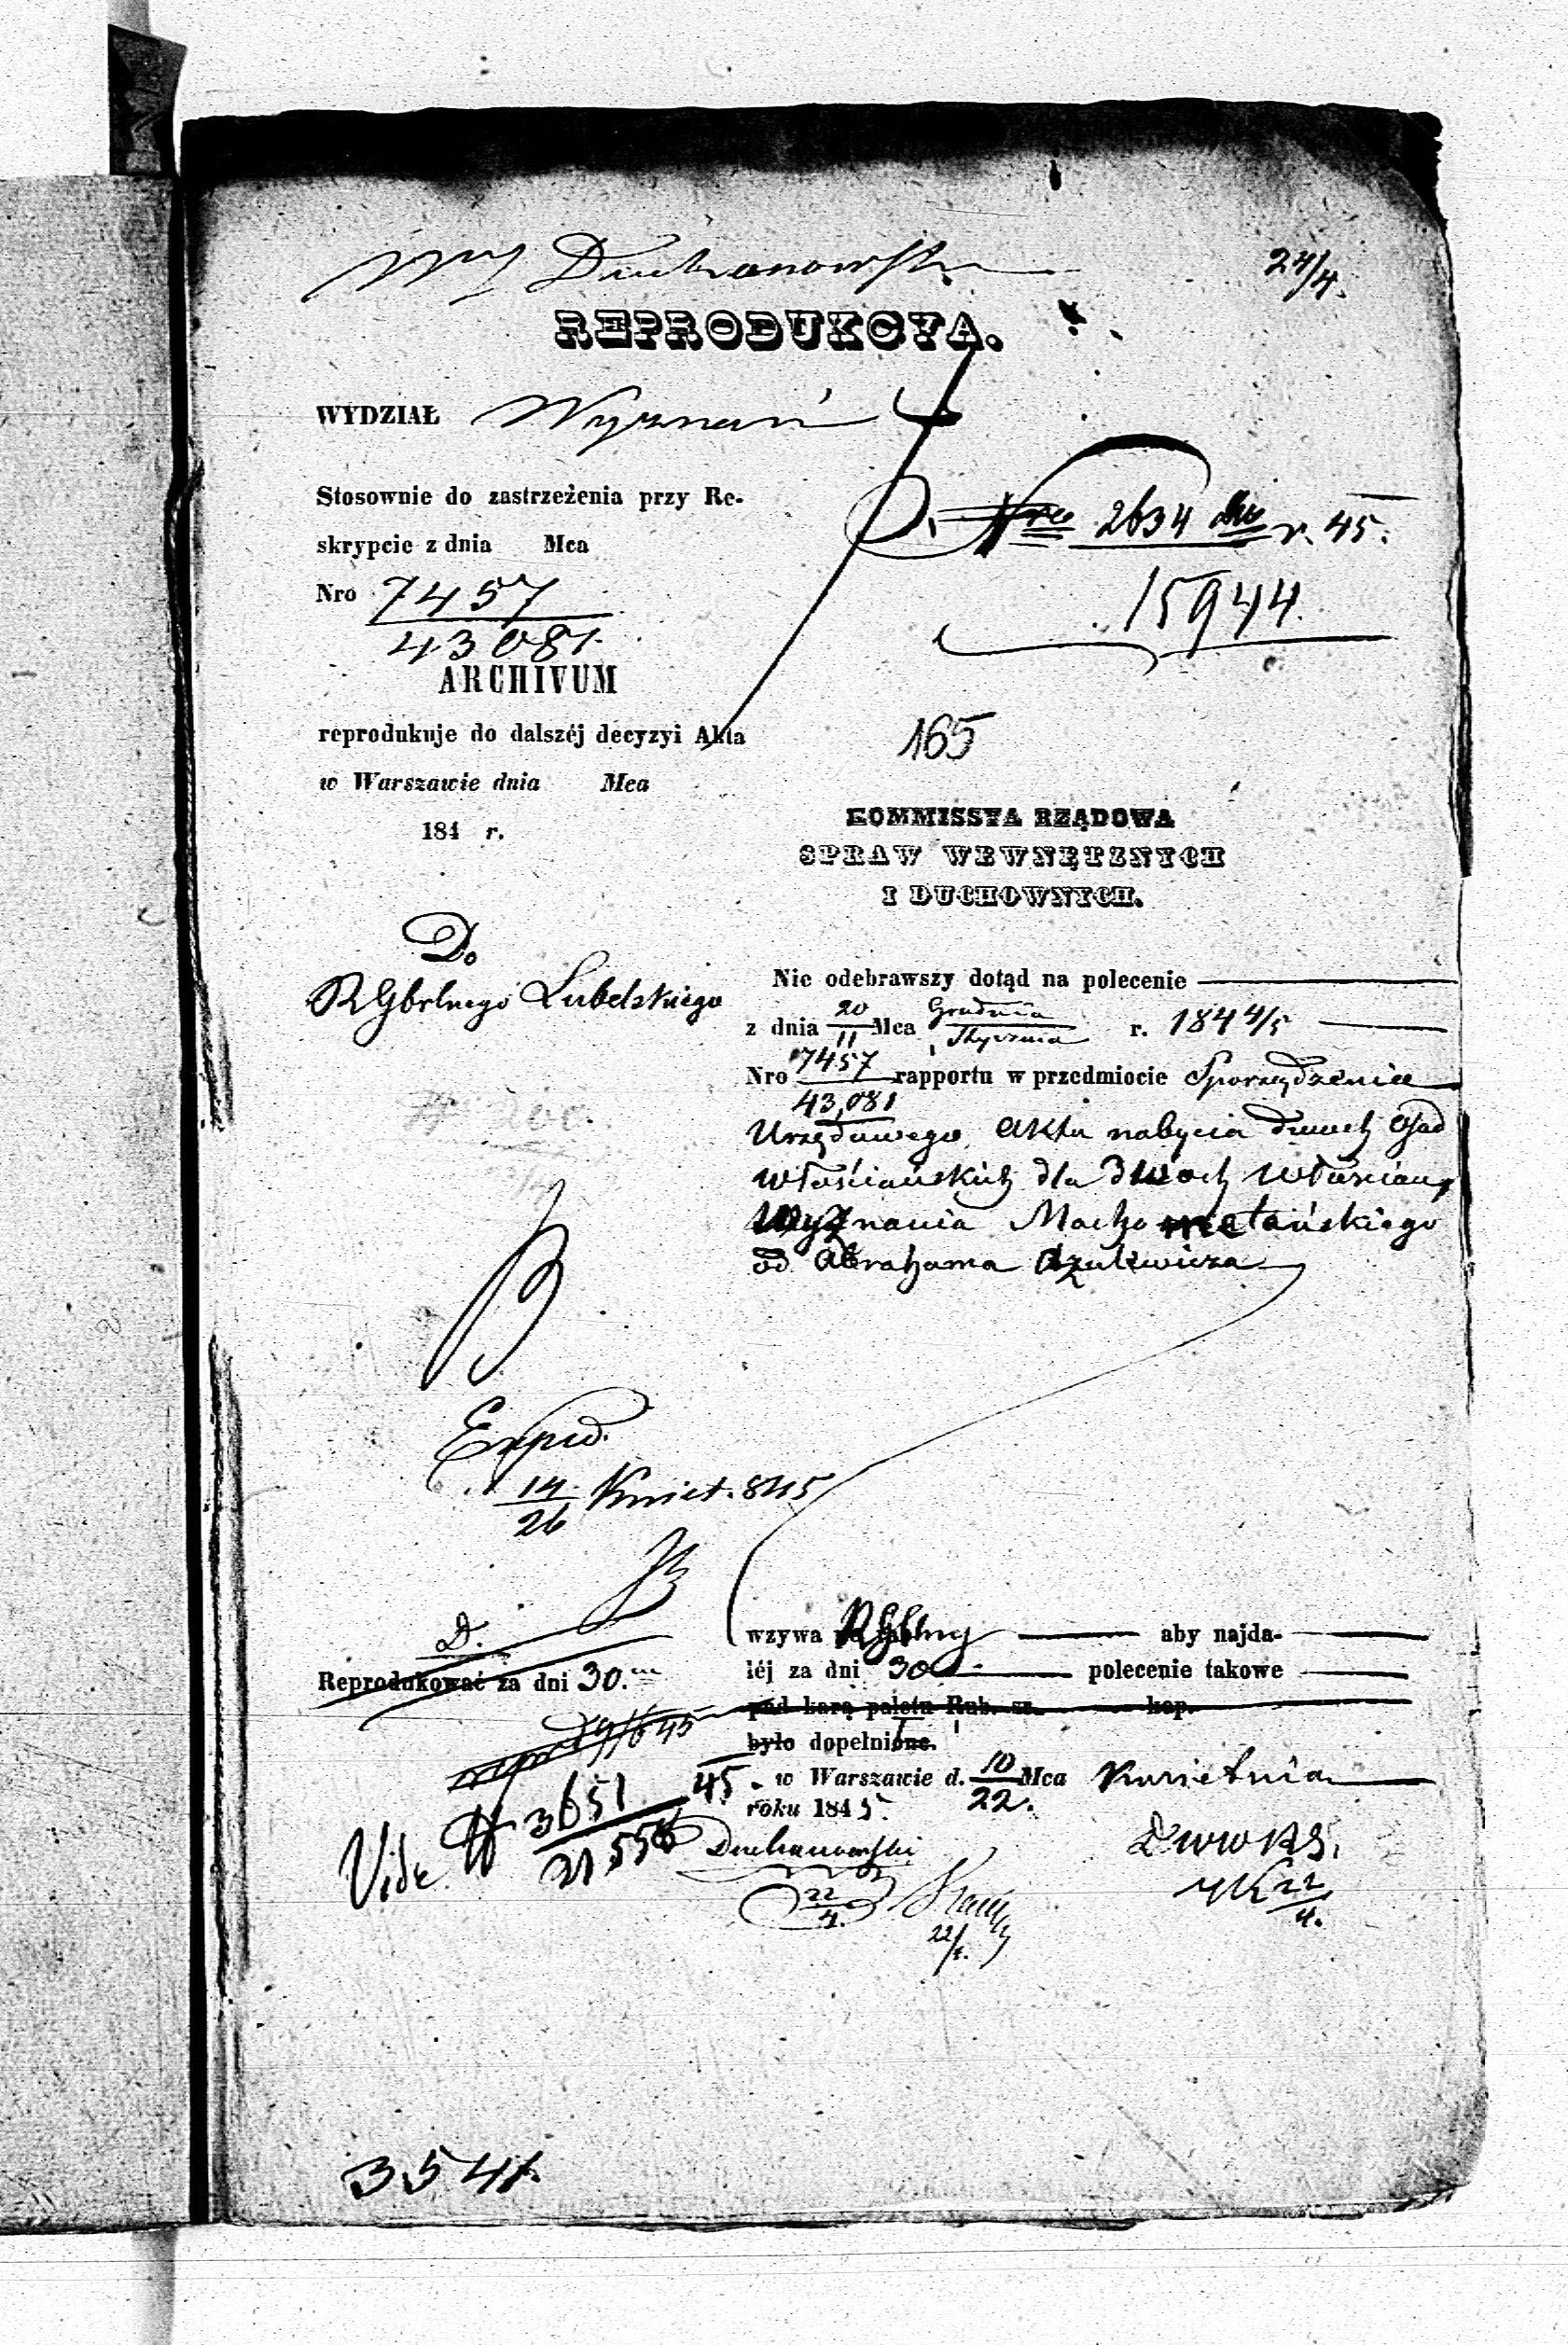 Duchanowski
24/4.
REPRODUKCYA.
WYDZIAŁ Wyznań
Stosownie do zastrzeżenia przy Re-
skrypcie z dnia Mca
Nro 7457
43081.
ARCHIVUM
reprodukuje do dalszéj decyzyi Akta
w Warszawie dnia Mca
184 r.
D. Nro 2634 r. 45.
15944.
165
KOMMISSYA RZĄDOWA
SPRAW WEWNĘTZNYCH
I DUCHOWNYCH.
Do
RGbrlnego Lubelskiego
Nie odebrawszy dotąd na polecenie
z dnia 20/11 Mca Grudnia/Stycznia r. 184 4/5
Nro 7457/43,081 rapportu w przedmiocie Sporządzenia
Urzędowego Aktu nabycia dwuch Osad
włościańskich dla dwoch włościan,
Wyznania Machometańskiego
od Abrahama Azulewicza
Exped.
14/26 Kwiet. 845
D.
Reprodukować za dni 30.
wzywa RGbrny aby najda-
léj za dni 30 polecenie takowe
pod karą paletu Rub. sr. kop.
było dopełnione.
w Warszawie d. 10/22. Mca Kwietnia
roku 1845.
Vide # 3651/21,556 45
Duchanowski
22/4.
22/4.
D W W R S.
22/4.
3541.